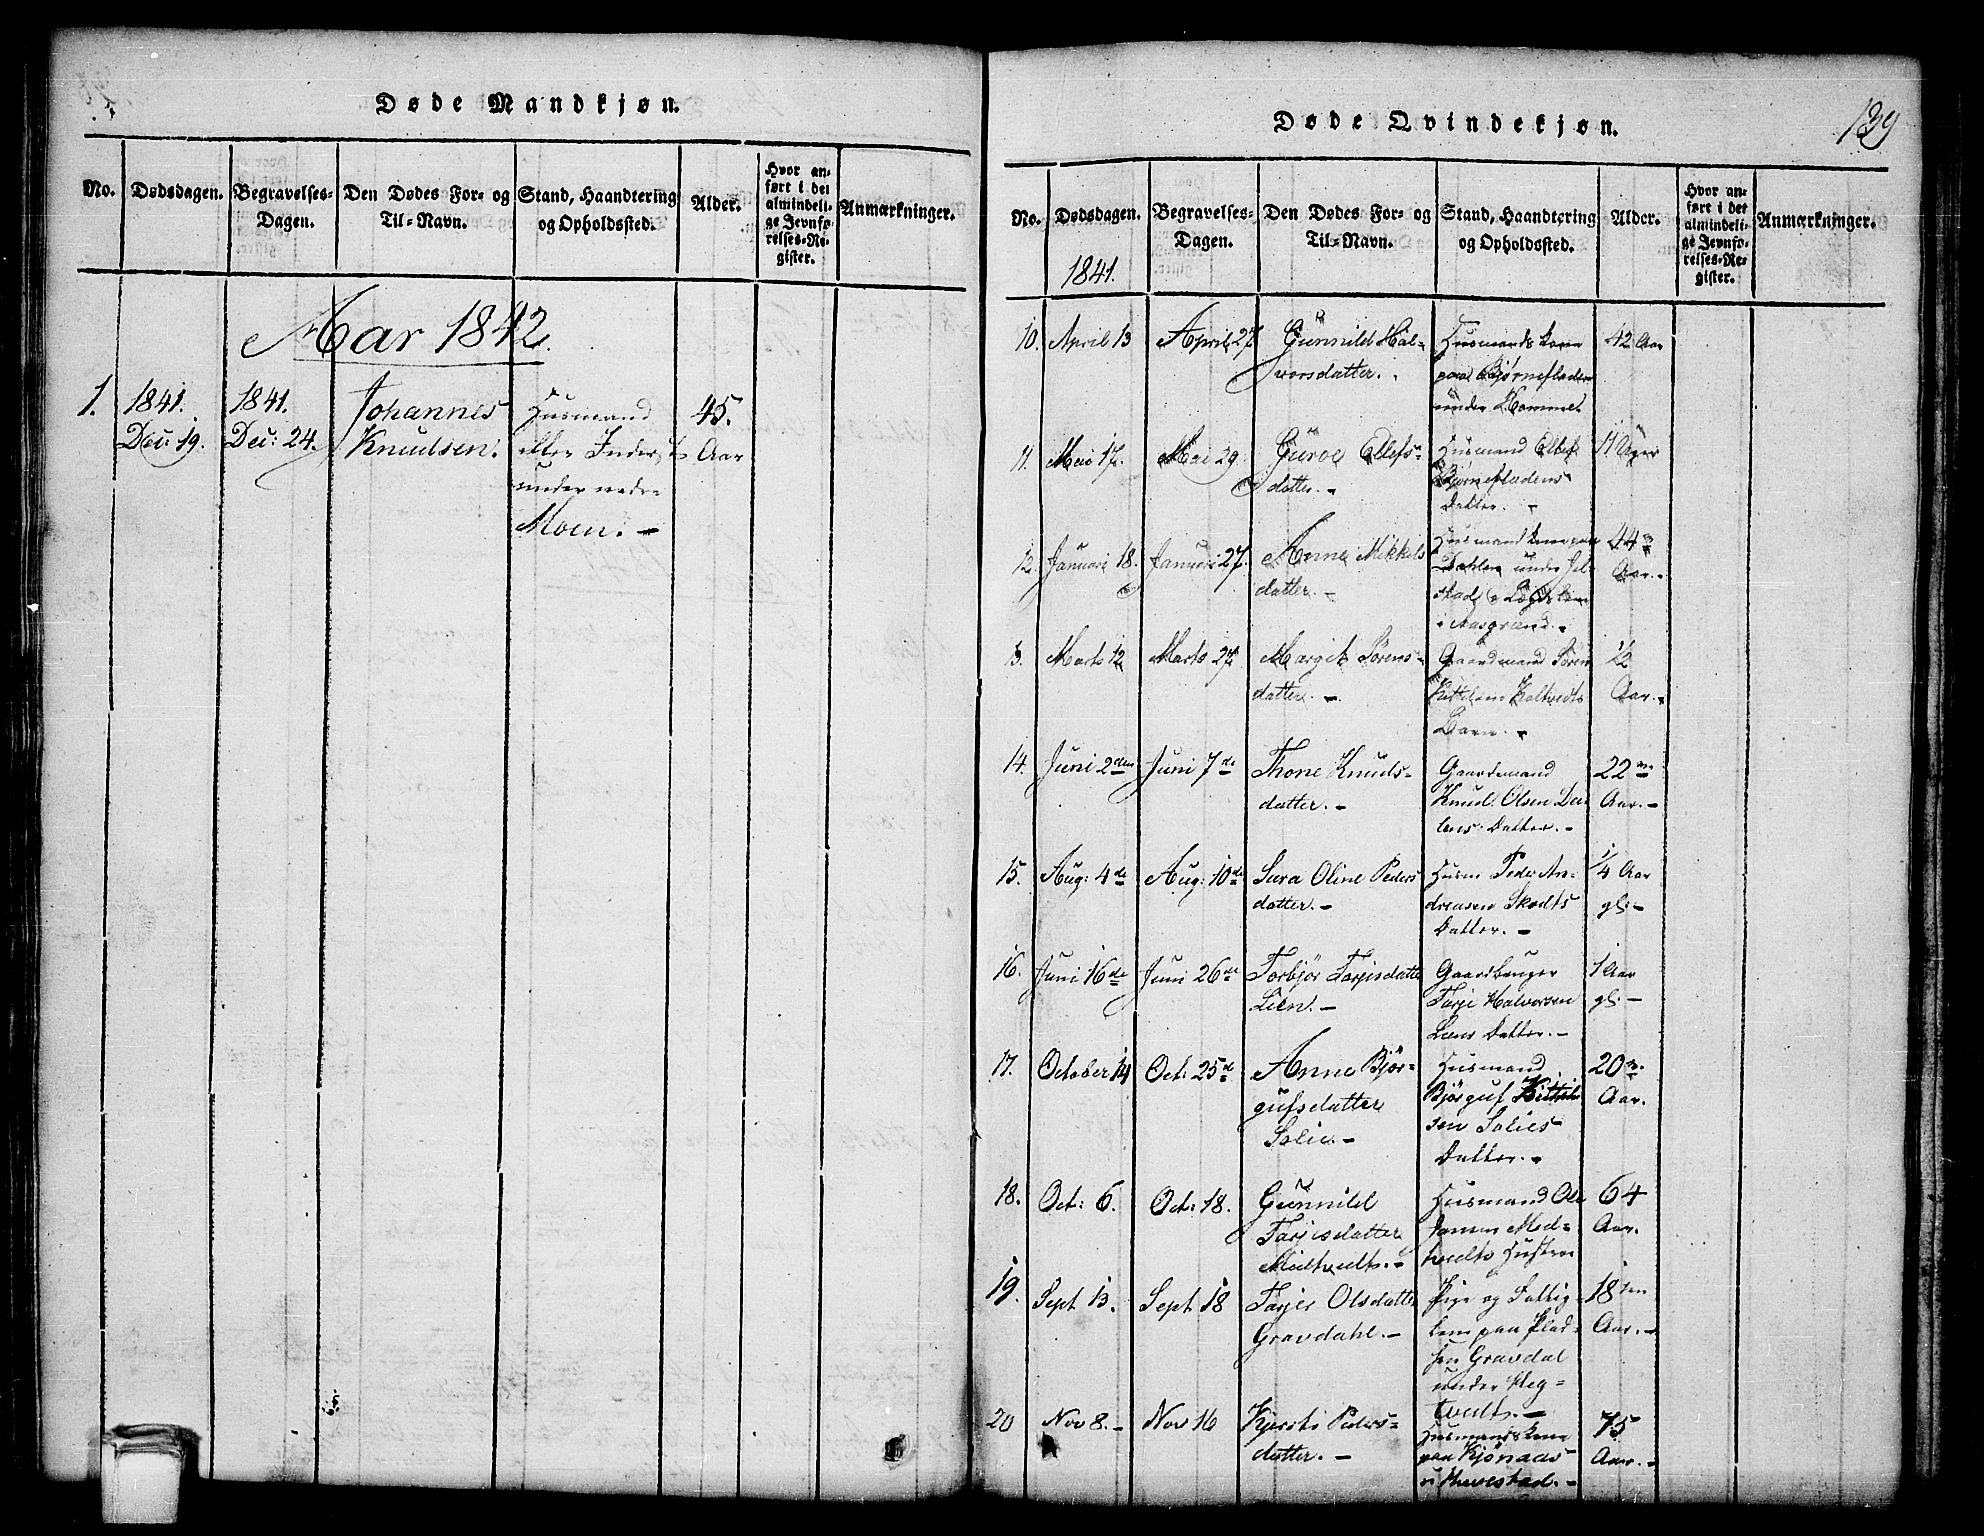 Døde Mandkjøn.
No.
Dødsdagen.
Begravelses-
Dagen.
Den Dødes For- og
Til-Navn.
Stand, Haandtering
og Opholdssted.
Alder.
Hvor an-
ført i det
almindeli-
ge Jevnfø-
relses-Re-
gister.
Anmærkninger.
Aar 1842.
1.
1841.
Dec: 19.
1841.
Dec: 24.
Johannes
Knudsen.
Husmand
eller Inderst
under nedre
Moen. -
45.
Aar
Døde Qvindekjøn.
139
No.
Dødsdagen.
1841.
Begravelses-
Dagen.
Den Dødes For- og
Til-Navn.
Stand, Haandtering
og Opholdssted.
Alder.
Hvor an-
ført i det
almindeli-
ge Jevnfø-
relses-Re-
gister.
Anmærkninger.
10. April 13 April 27 Gunnild Hal-
vorsdatter.
Husmands kone
paa Bjørnefladen
under Hommel
42 Aar
11. Mai 17. Mai 29. Guroe Ellefs-
datter. -
Husmand Ellef
Bjørnefladens
Datter. -
11 Uger
12. Januari 18. Januari 27. Anne Mikkels
datter. -
Husmandskone paa
Dahlen under
i Aasgrænd. -
44
Aar. -
13. Marts 12 Marts 27. Margit Sørens-
datter. -
Gaardmand Søren
Kittilsens Kaltvedts
Barn. -
1/2
Aar. -
14. Juni 2den Juni 7de Thone Knuds-
datter. -
Gaardmand
Knud Olsen Da-
lens Datter. -
22
Aar. -
15. Aug: 4de Aug: 10de Sara Oline Peders
datter. -
Husm Peder An-
dreasen Skodts
Datter. -
1/4 Aar
gl: -
16. Juni 16de Juni 26de Torbjør Tarjisdatter
Lien. -
Gaardbruger
Tarje Halvorsen
Liens Datter. -
1 Aar
gl. -
17. October 14 Oct: 25de Anne Bjør-
gufsdatter
Solie. -
Husmand
Bjørguf Kittil-
sen Solies
Datter. -
20
Aar.
18. Oct: 6. Oct: 18. Gunnild
Tarjisdatter
Midtvedts. -
Husmand Ole
Jansen Med-
tvedts Hustroe
64
Aar.
19. Sept 13. Sept 18 Tarjer Olsdatter
Gravdahl. -
Pige og Fattig-
lem paa Plad-
sen Gravdal
under Heg-
tvedt. -
18
Aar. -
20 Nov 8. - Nov 16 Kjersti Peders-
datter. -
Husmandskone
paa Kjønaas
u/ Hvevestad. -
75
Aar. -